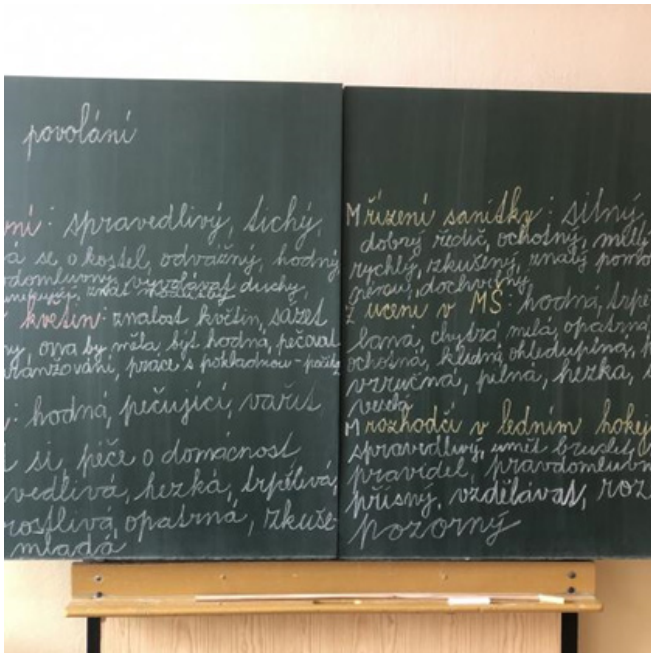 povolání
mi: spravedlivý, tichý,
á se o kostel, odvážný, hodný,
domluvný, vyvolávat duchy,
znát modlitby
květin: znalost květin, sázet
ny ona by měla být hodná, pečovat
aranžování, práce s pokladnou - peníze
: hodná, pečující, vařit
si, péče o domácnost
vedlivá, hezká, trpělivá,
rostlivá, opatrná, zkuše-
mladá
M řízení sanitky: silný,
dobrý řidič, ochotný, milý
rychlý, zkušený, znalý pomo
dochvilný
Ž učení v MŠ: hodná, trpě
baná, chytrá milá, opatrná
ochotná, klidná, ohleduplná, h
vzručná, pilná, hezká, s
veselá
M rozhodčí v ledním hokej
spravedlivý, umět bruslit
pravidel, pravdomluvn
přísný, vzdělávat, roz
pozorný